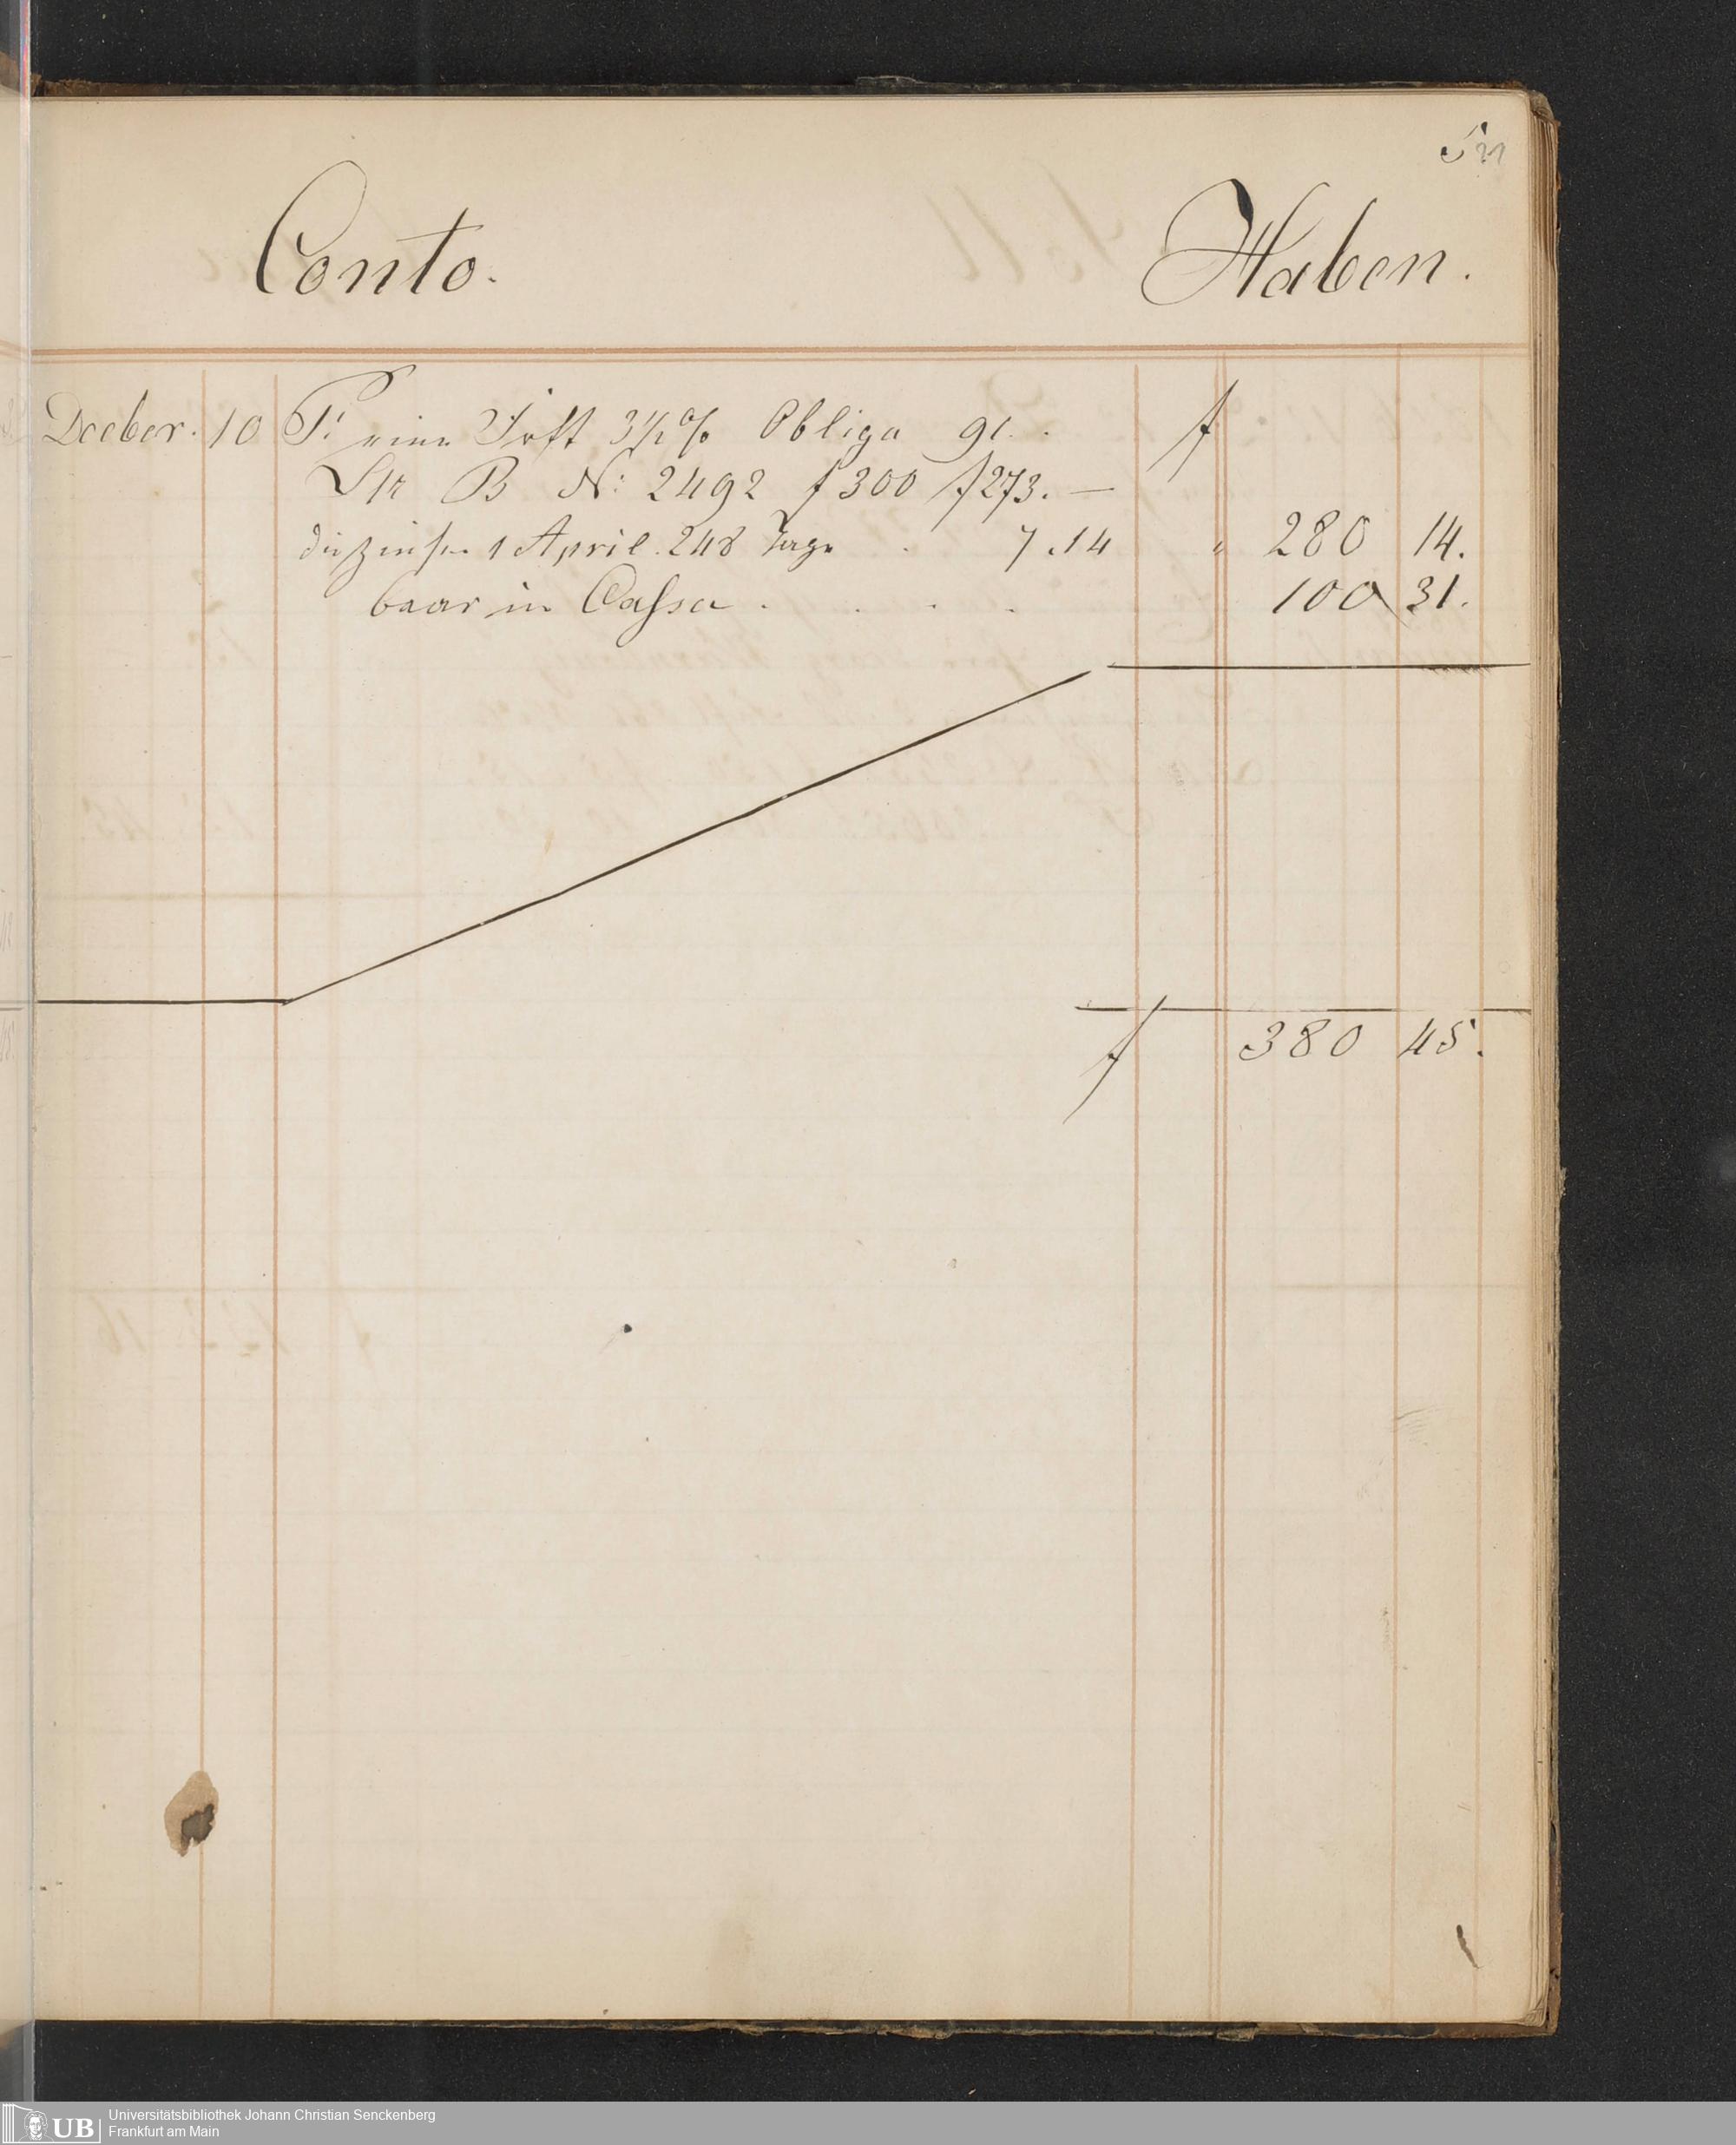 5
Conto. Haben.
Decber. 10 Pr eine Frkft 3½% Obliga 91. f
Ltr B No: 2492 f 300 f 273. —
die Zinsen 1 April. 248 Tage . 7.14 " 280 14.
baar in Cassa . . . . 100 31.
f 380 45.
UB Universitätsbibliothek Johann Christian Senckenberg
Frankfurt am Main